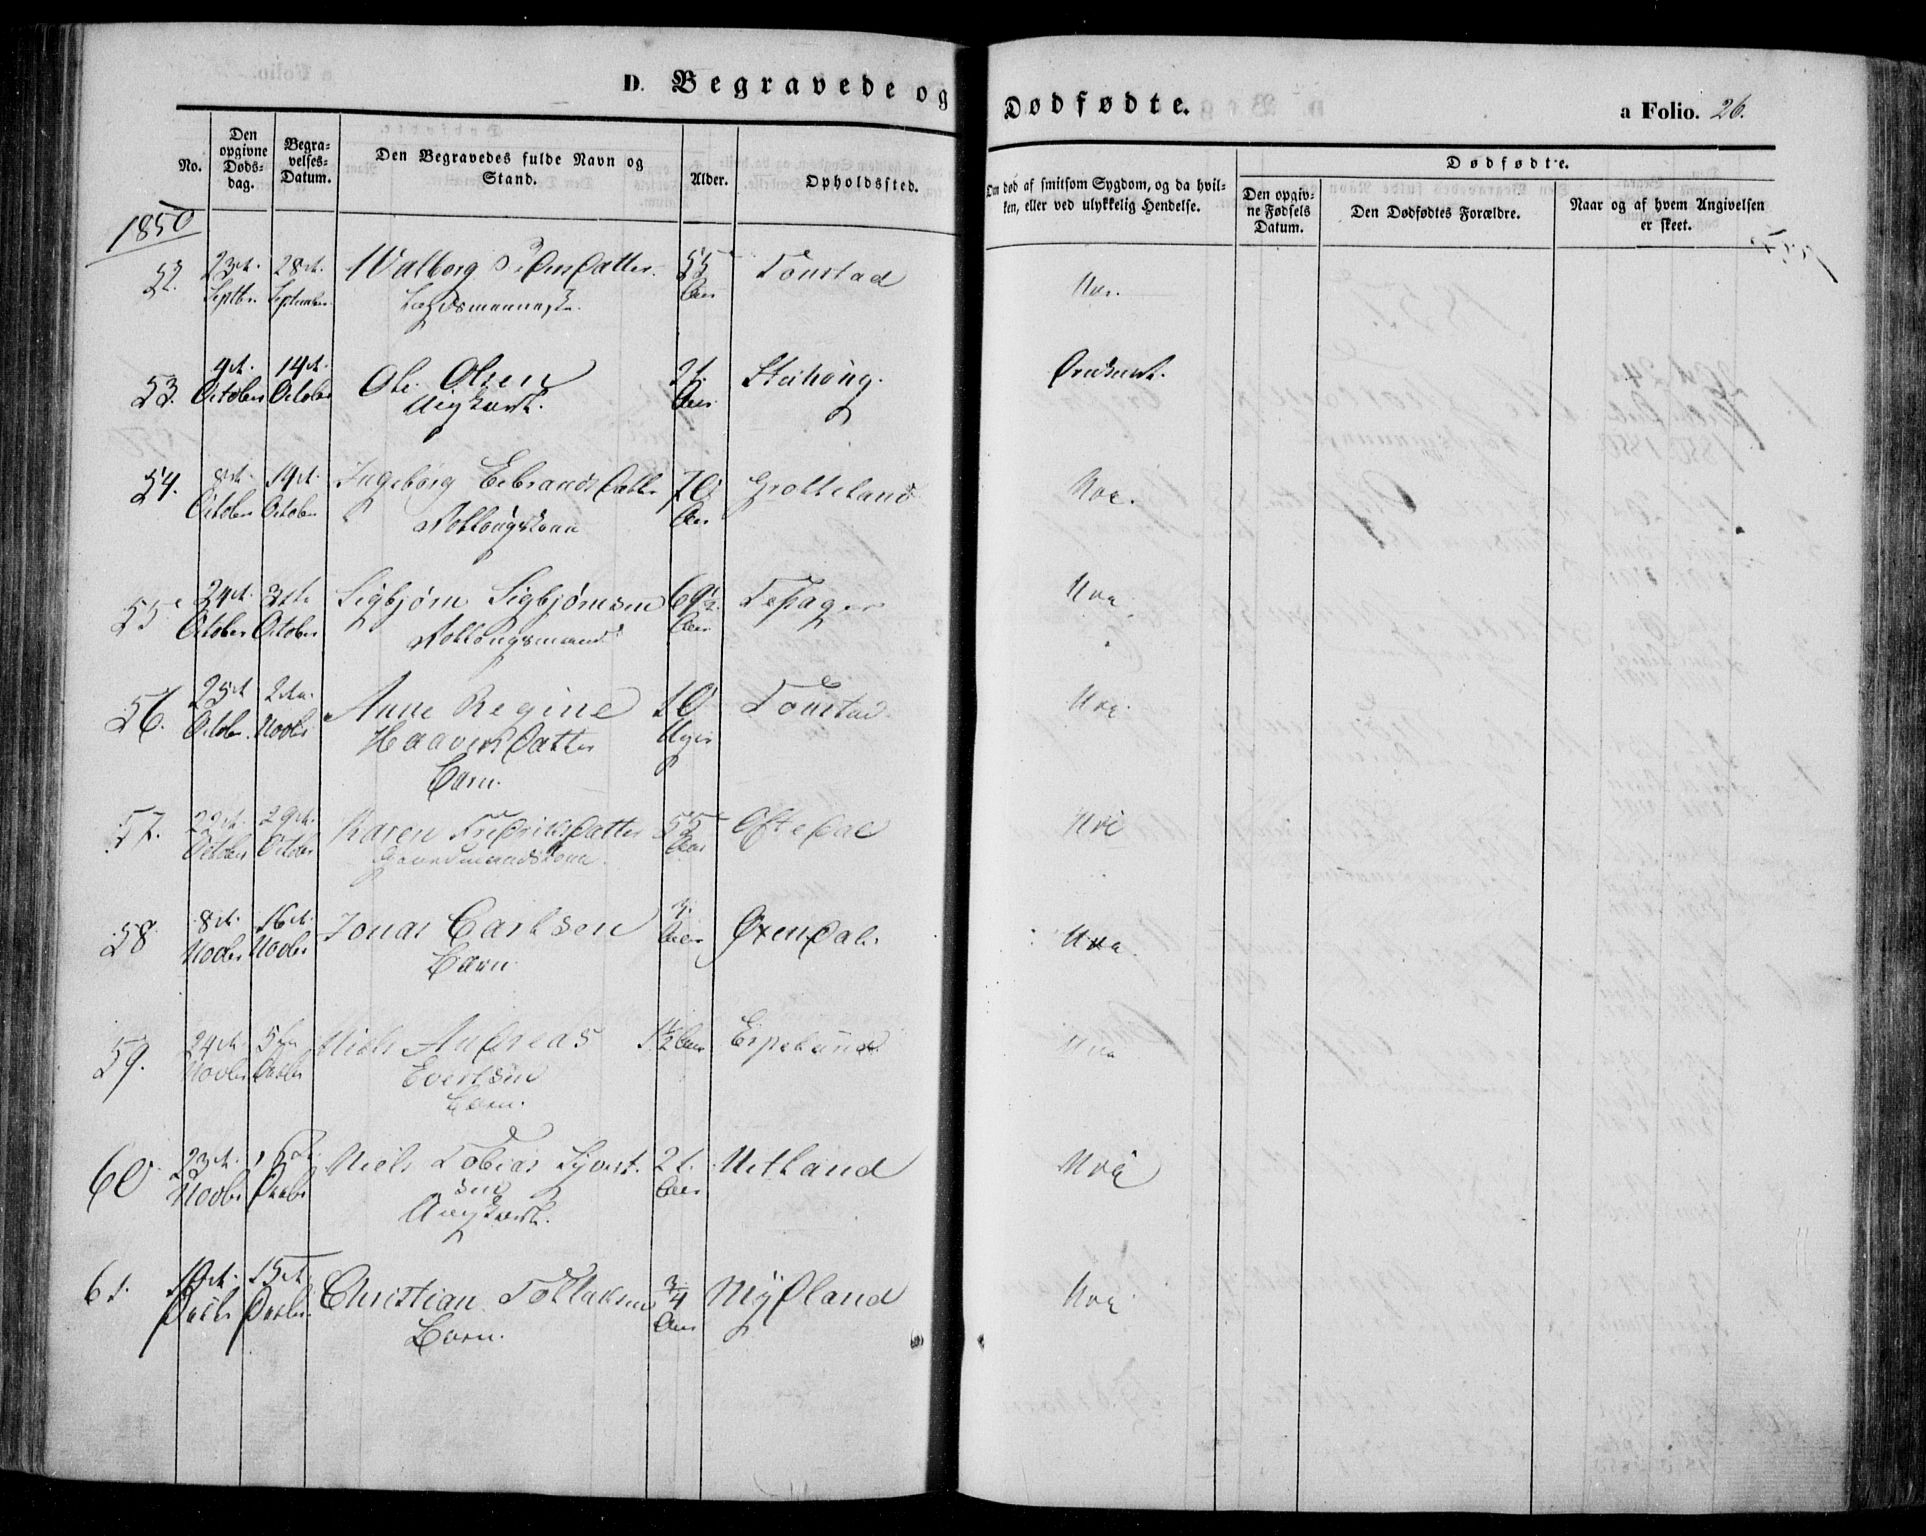 D. Begravede og Dødfødte.
a Folio. 26.
No.
Den opgivne Døds-dag.
Begra-velses-Datum.
Den Begravedes fulde Navn og Stand.
Alder.
Opholdssted.
Om død af smitsom Sygdom, og da hvil-
ken, eller ved ulykkelig Hendelse.
Dødfødte.
Den opgiv-ne Fødsels Datum.
Den Dødfødtes Forældre.
Naar og af hvem Angivelsen er skeet.
1850
52. 23de 28de Walborg Datter 55 Tonstad
Septbr September Aar Nei.
Lægdsmenneske.
53. 4de 14de Ole Olsen 21 Øvedrent.
October October Ungkarl. Aar
54. 8de 14de Ingeborg Datter 70 Grotteland Nei.
October October Aar
55 24de 31te Sigbjørn Sigbjørnsen 69½ Nei
October October Aar
56. 25de 2den Anne Regine 10 Tonstad Nei.
Octobr. Novbr Haavers Datter Uger
Barn.
57. 22de 29de Karen Fredriks Datter 55 Oftedal Nei
October October Gaardmandskone Aar
58 8de 16de Jonas Carlsen 3. Øxendal. Nei
Novbr Novbr Barn Aar
59. 24de 5te Niels Andreas 1½ Aar Espeland Nei
Novbr Decbr Evertsen
Barn.
60 23de Niels Tobias Syvert 21. Netland Nei
Novbr Decbr sen Aar
Ungkarl.
61. 10de 15de Christian Tollaksen 3/4 Mydland Nei
Decbr Decbr. Barn. Aar